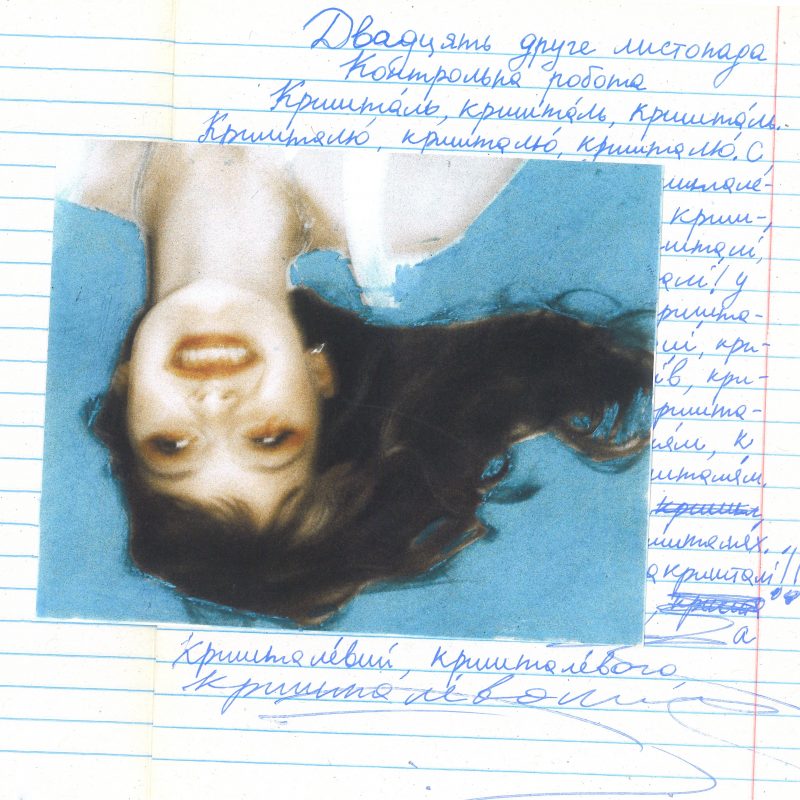 Двадцять друге листопада
Контрольна робота
Кришта́ль, кришта́ль, кришта́ль.
Кришталю́, кришталю́, кришталю́. С
кри-
шталі,
алі! у
ришта-
кри-
ів, кри-
ришта-
лям, к
шталям.
шталях.
а кришталі!!
а
Криштале́вий, криштале́вого,